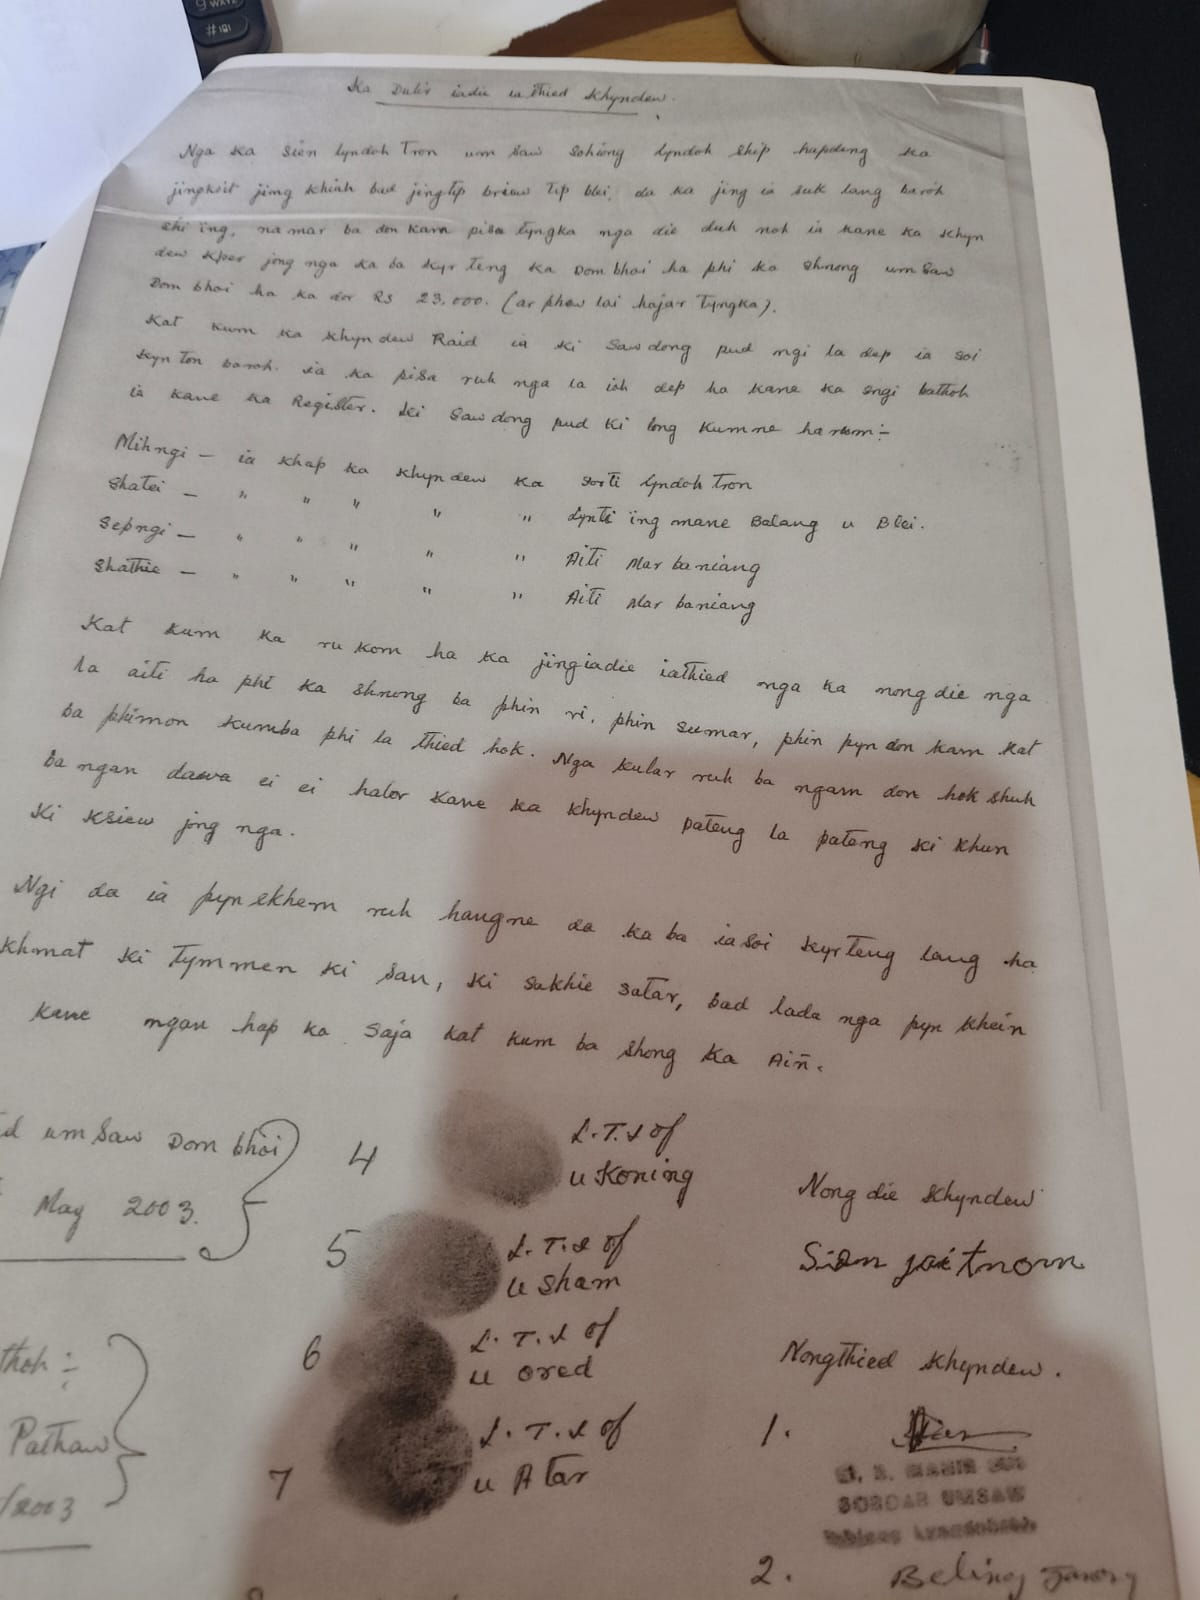 9 WXYZ
#
Ka Dulir iadie ia thied Khyndew.
Nga Ka Sien lyndoh Tron um Saw Sohiong lyndoh Ship hapdeng ka
jingkoit jing khiah bad jingtip briew tip blei, da ka jing ia suk lang baroh
Shi ïng, na mar ba don kam pisa tyngka nga die duh noh ia kane ka Khyn
dew Kper jong nga ka ba Kyr teng ka Dom bhoi ha phi ka Shnong um Saw
Dom bhoi ha ka dor Rs 23,000. (ar phew lai hajar Tyngka).
Kat kum ka Khyn dew Raid ia ki Saw dong pud ngi la dep ia soi
Kyn ton baroh. ia ka pisa ruh nga la ioh dep ha kane ka sngi bathoh
ia kane ka Register. Ki Saw dong pud Ki long Kumne harum:-
Mihngi - ia khap ka khyn dew ka Sorti lyndoh Tron
Shatei - " " " " " Lynti ïng mane Balang u Blei.
Sepngi - " " " " " Aiti Mar baniang
Shathie - " " " " " Aiti Mar baniang
Kat kum ka ru kom ha ka jingiadie iathied nga ka nong die nga
la aiti ha phi ka Shnong ba phin ri, phin sumar, phin pyn don kam kat
ba phimon kumba phi la thied hok. Nga kular ruh ba ngam don hok shuh
ba ngan dawa ei ei halor kane ka khyndew pateng la pateng ki khun
Ki Ksiew jong nga.
Ngi da ia pyn skhem ruh hangne da ka ba ia soi Kyrteng lang ha
khmat ki Tymmen ki san, ki sakhie satar, bad lada nga pyn khein
kane ngan hap ka saja kat kum ba shong ka Aiñ.
um Saw Dom bhoi
May 2003.
thoh :-
Pathaw
/2003
4 L.T.I of
u Koning
5 L.T.I of
u Sham
6 L.T.I of
u ored
7 L.T.I of
u Atar
Nong die Khyndew
Sien jaitnom
Nongthied Khyndew.
1.
SORDAR UMSAW
2. Beling